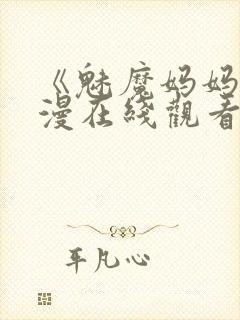 《魅魔妈妈
漫在綫觀看
平凡心